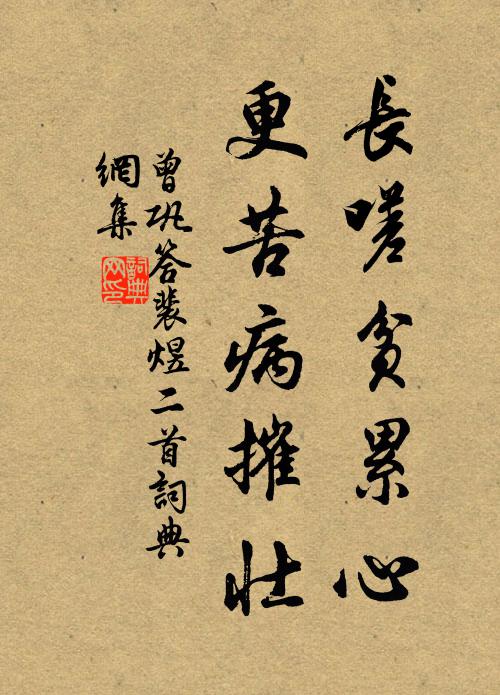 長嗟貧累心
更苦病摧壯
曾巩答裴煜二首詞典
網集
詞典
网印